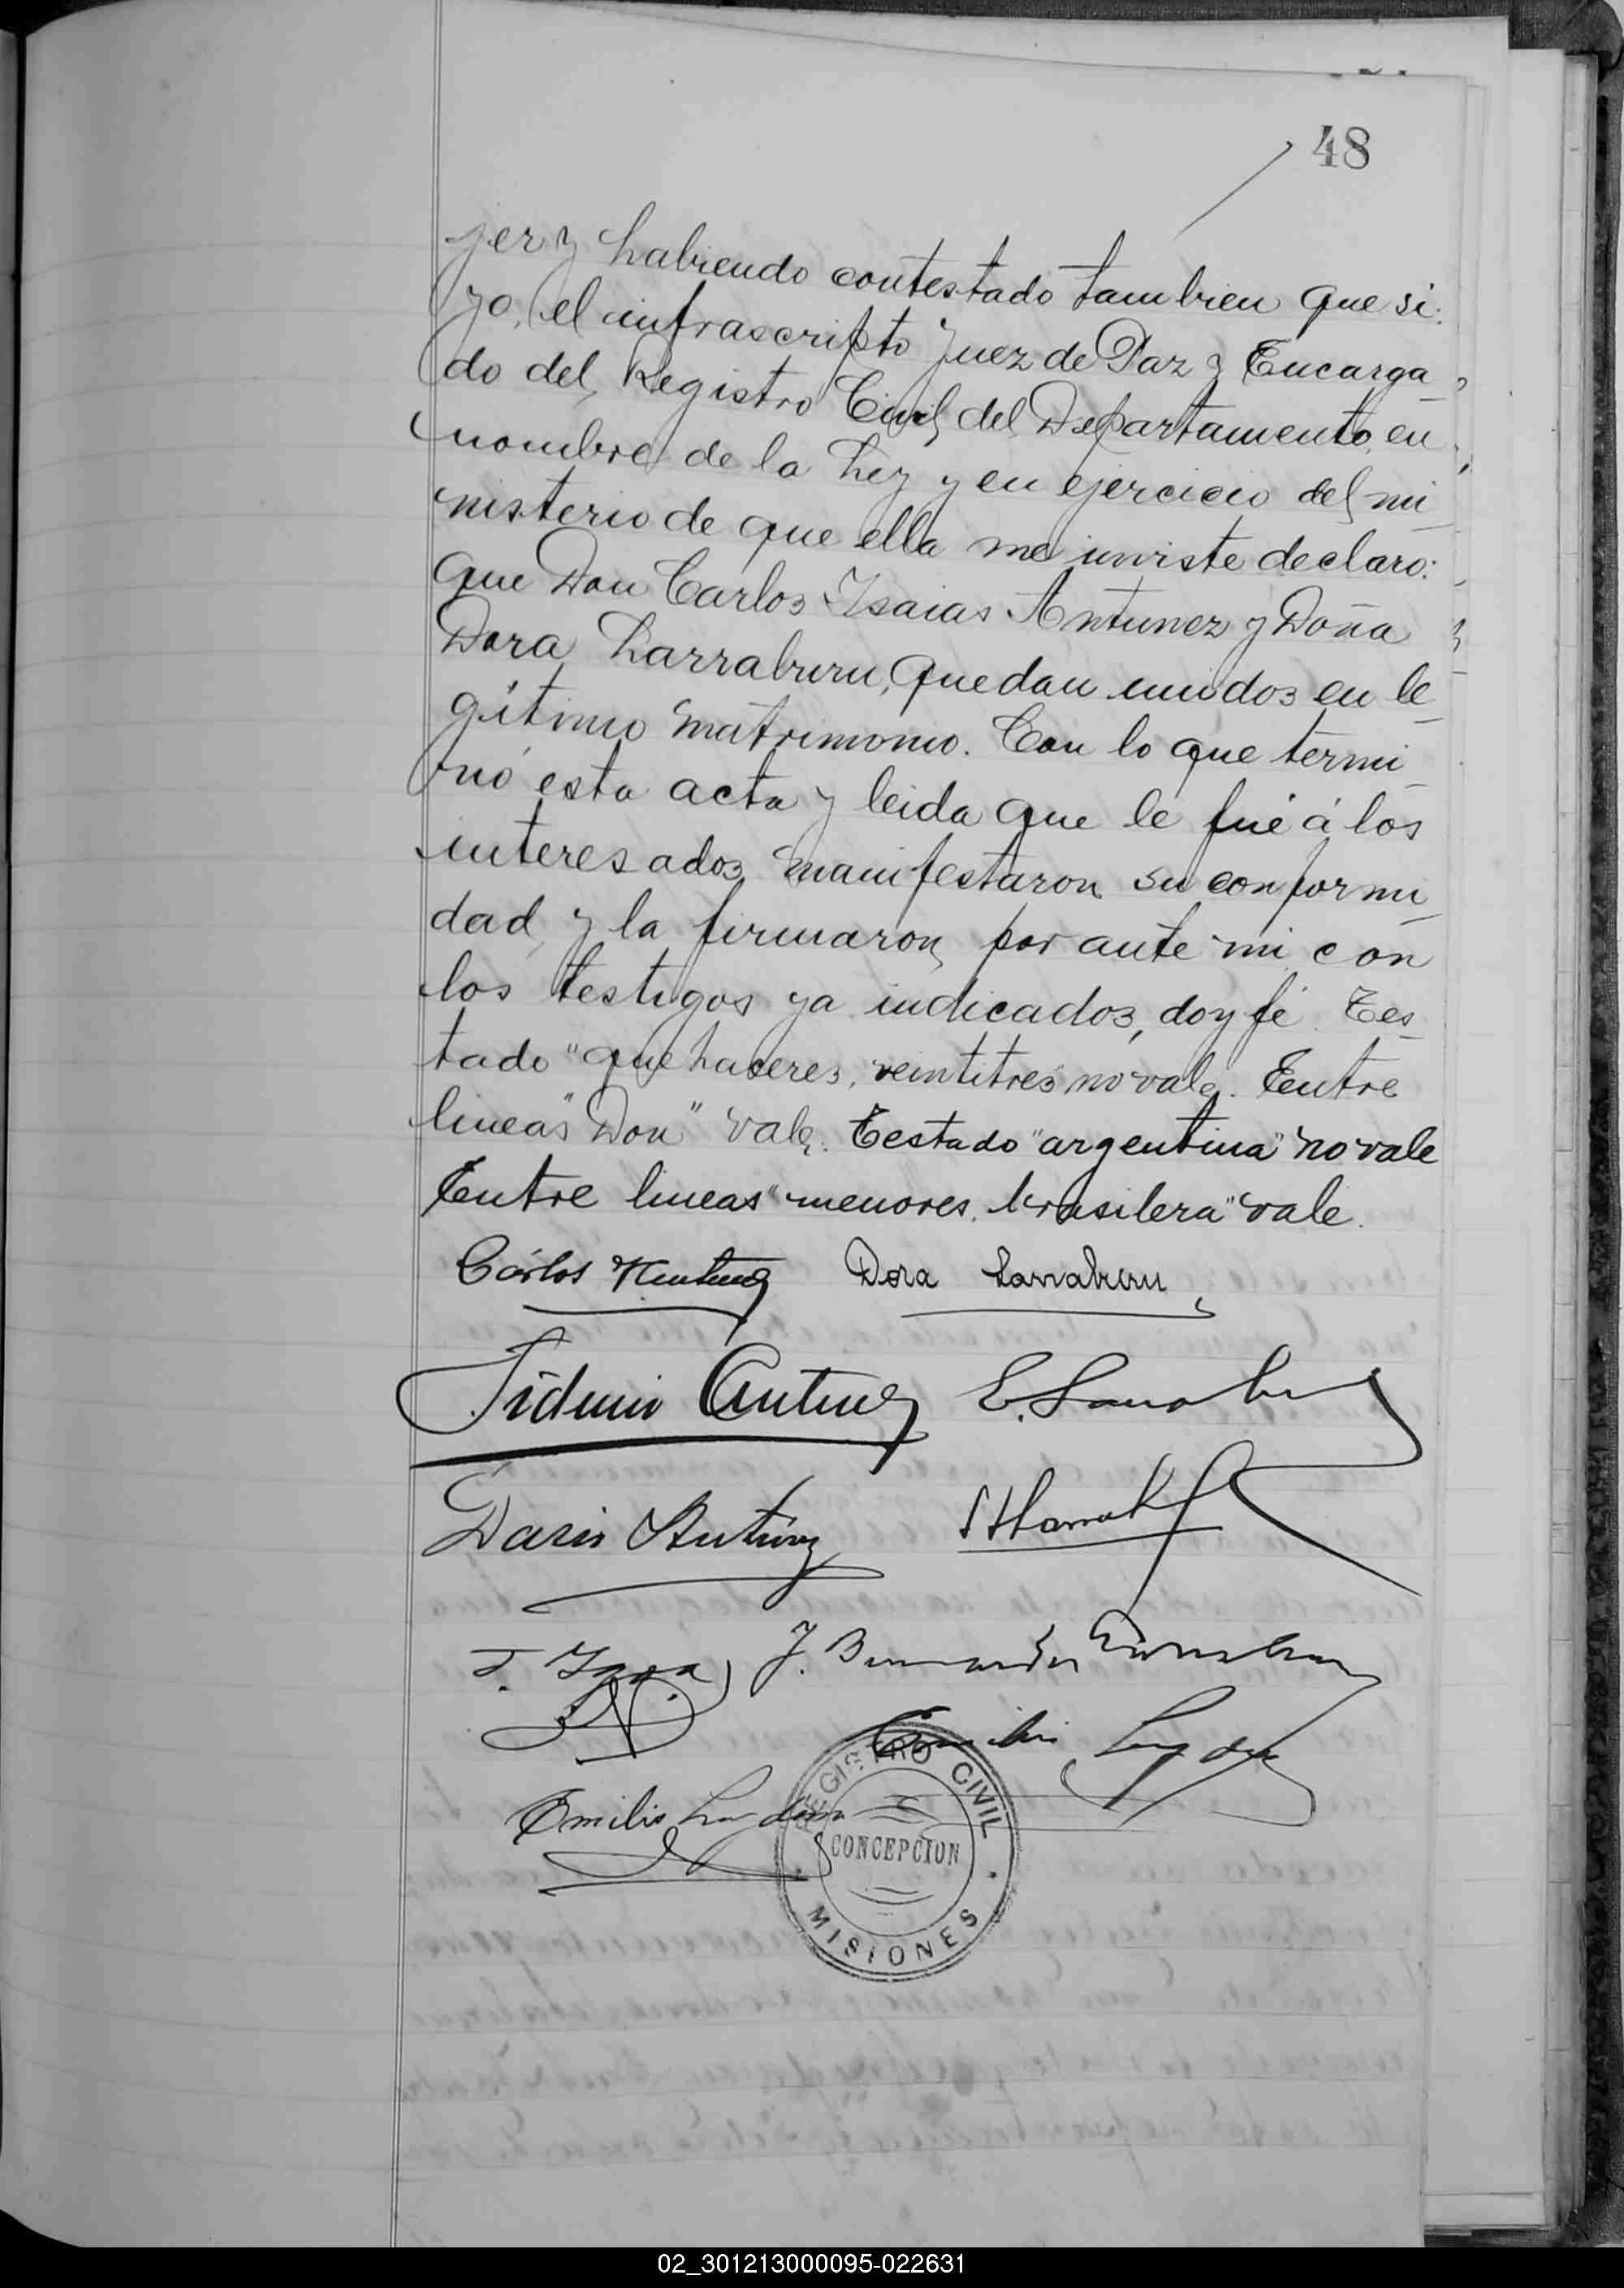 48
jer y habiendo contestado tambien que si:
yo, el infrascripto Juez de Paz y Encarga
do del Registro Civil del Departamento, en
nombre de la Ley y en ejercicio del mi
nisterio de que ella me inviste declaro:
que Don Carlos Isaias Antunez y Doña
Dora Larraburu, quedan unidos en le
gítimo matrimonio. Con lo que termi
nó esta acta y leida que le fué á los
interesados manifestaron su conformi
dad y la firmaron por ante mi con
los testigos ya indicados, doy fé. Tes
tado "que haceres, veintitres" no vale. Entre
lineas "Don" vale. Testado "argentina" no vale
Entre lineas "menores, brasilera" vale.
Cárlos Antunez Dora Larraburu
Antunez E.
Dario Antunez
J.
Emilio
Emilio
REGISTRO CIVIL
CONCEPCION
MISIONES
02_301213000095-022631